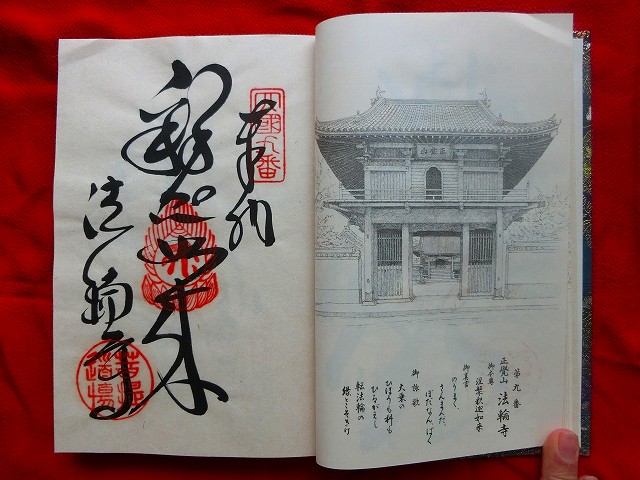 四國九番
奉納
釈迦如来
法輪寺
菩提道場
正覺山
第九番
正覺山 法輪寺
御本尊
涅槃釈迦如来
御真言
のうまく
さんまんだ
ぼだなん ばく
御詠歌
大乗の
ひほうも科も
ひるがえし
転法輪の
縁とこそきけ